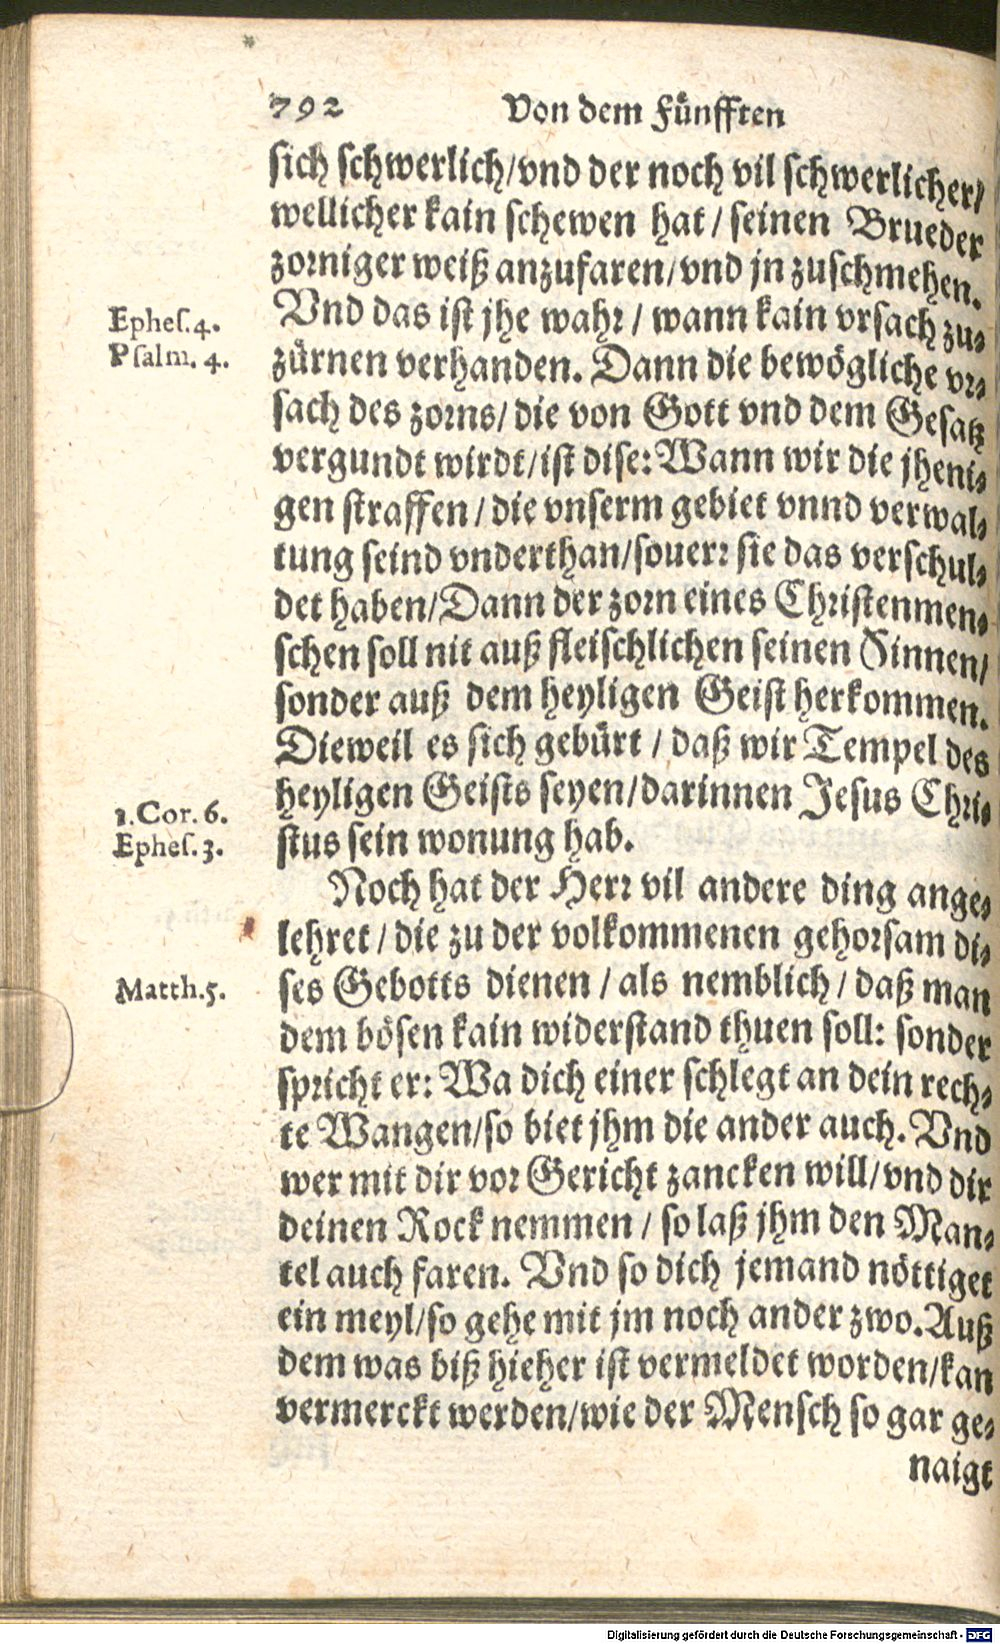 792 Von dem Fünfften
sich schwerlich/vnd der noch vil schwerlicher/
wellicher kain schewen hat / seinen Brueder
zorniger weiß anzufaren/vnd jn zuschmehen.
Ephes.4. Vnd das ist jhe wahr / wann kain vrsach zu-
Psalm. 4. zürnen verhanden. Dann die bewögliche vr-
sach des zorns/ die von Gott vnd dem Gesatz
vergundt wirdt/ist dise: Wann wir die jheni-
gen straffen / die vnserm gebiet vnnd verwal-
tung seind vnderthan/souerr sie das verschul-
det haben/Dann der zorn eines Christenmen-
schen soll nit auß fleischlichen seinen Sinnen/
sonder auß dem heyligen Geist herkommen.
Dieweil es sich gebürt / daß wir Tempel des
1.Cor. 6. heyligen Geists seyen/darinnen Jesus Chri-
Ephes.3. stus sein wonung hab.
Noch hat der Herr vil andere ding ange-
lehret / die zu der volkommenen gehorsam di-
Matth.5. ses Gebotts dienen / als nemblich / daß man
dem bösen kain widerstand thuen soll: sonder
spricht er: Wa dich einer schlegt an dein rech-
te Wangen/so biet jhm die ander auch. Vnd
wer mit dir vor Gericht zancken will/vnd dir
deinen Rock nemmen / so laß jhm den Man-
tel auch faren. Vnd so dich jemand nöttiget
ein meyl/so gehe mit jm noch ander zwo. Auß
dem was biß hieher ist vermeldet worden/kan
vermerckt werden/wie der Mensch so gar ge-
naigt
Digitalisierung gefördert durch die Deutsche Forschungsgemeinschaft - DFG